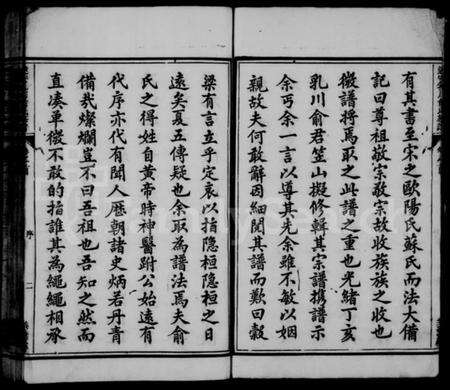 有其書至宋之歐陽氏蘇氏而法大備
記曰尊祖敬宗敬宗故收族族之收也
徵譜將焉取之此譜之重也光緒丁亥
乳川俞君笠山擬修輯其宗譜攜譜示
余丐余一言以導其先余雖不敏以姻
親故夫何敢辭因細閱其譜而歎曰穀
梁有言立乎定哀以指隱桓隱桓之日
遠矣夏五傳疑也余取為譜法焉夫俞
氏之得姓自黃帝時神醫跗公始遠有
代序亦代有聞人歷朝諸史炳若丹青
備哉燦爛豈不曰吾祖也吾知之然而
直湊單微不敢的指誰其為繩繩相承
序
二